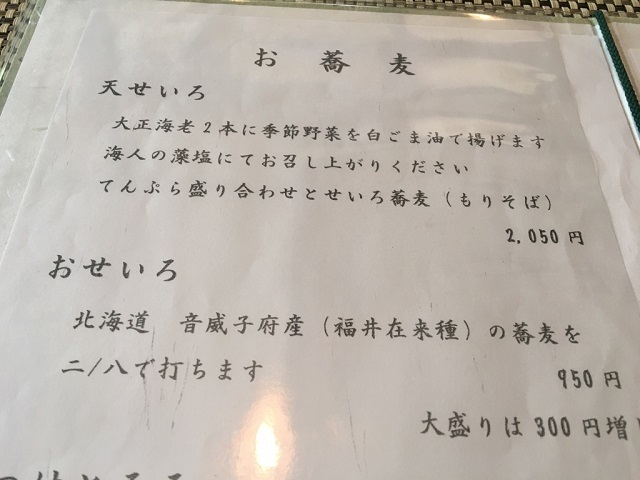 お蕎麦
天せいろ
大正海老2本に季節野菜を白ごま油で揚げます
海人の藻塩にてお召し上がりください
てんぷら盛り合わせとせいろ蕎麦（もりそば）
2,050円
おせいろ
北海道　音威子府産（福井在来種）の蕎麦を
二/八で打ちます
950円
大盛りは300円増